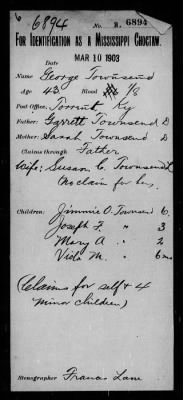 6 6894
No. R. 6894
FOR IDENTIFICATION AS A MISSISSIPPI CHOCTAW.
Date MAR 10 1903
Name George Townsend
Age 43 Blood 1/8
Post Office, Torrent Ky
Father: Garrett Townsend D
Mother: Sarah Townsend D
Claims through Father
Wife: Susan C. Townsend
No claim for her.
Children: Jimmie O. Townsend 6
Joseph F. " 3
Mary A " 2
Viola M. " 6 mo
(Claims for self & 4
minor children)
Stenographer Frances Lane